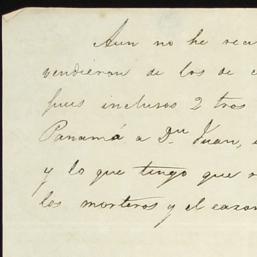 Aun no he
vendieron de los de
pues inclusos 2 tros
Panamá a Dn Juan,
y lo que tengo que
los morteros y el